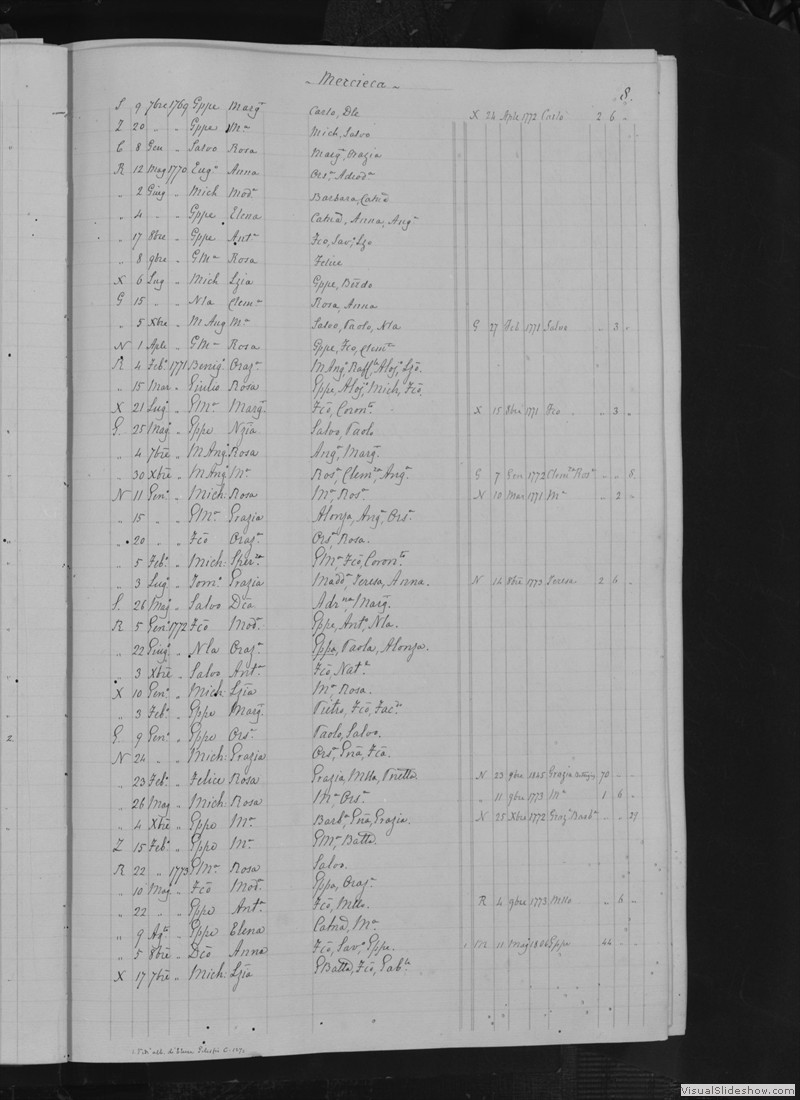 Mercieca
8.
S 9 7bre 1769 Gppe Marg.a Carlo, Dle X 24 Aple 1772 Carlo 2 6 "
Z 20 " " Gppe M.a Mich, Salvo
C 8 Gen " Salvo Rosa Marg.a, Grazia
R 12 Mag 1770 Eug.o Anna Ors.a
" 2 Giug " Mich Mod.a Barbara, Catna
" 4 " " Gppe Elena Catna, Anna, Ang.a
" 17 8bre " Gppe Ant.a Fco, Sav.o, Lzo
" 8 9bre " GM.a Rosa Felice
X 6 Lug " Mich Lzia Gppe, Bndo
G 15 " " Nla Clem.a Rosa, Anna
" 5 Xbre " M Ang M.a Salvo, Paolo, Nla G 27 Feb 1771 Salvo " 3 "
N 1 Aple " GM.a Rosa Gppe, Fco, Clem.te
R 4 Feb.o 1771 Benig.o Oraz.a M Ang.o Raff.le, Aloj.o, Lzo.
" 15 Mar " Giulio Rosa Gppe, Aloj.o, Mich, Fco
X 21 Lug. " GM.a Marg.a Fco, Coron.ta X 15 8bre 1771 Fco " 3 "
G 25 Mag " Gppe Nzia Salvo, Paolo
" 4 7bre " M Ang. Rosa Ang.a, Marg.a
" 30 Xbre " M Ang. M.a Ros.a, Clem.za, Ang.a G 7 Gen 1772 Clem.za Ros.a " " 8
N 11 Gen.o " Mich: Rosa M.a, Ros.a N 10 Mar 1771 M.a " 2 "
" 15 " " GM.a Grazia Alonza, Ang.a, Ors.a
" 20 " " Fco Oraz.a Ors.a, Rosa.
" 5 Feb.o " Mich: Sper.za GM.a, Fco, Coron.to
" 3 Lug. " Dom.o Grazia Madd.a, Teresa, Anna. N 14 Xbre 1773 Teresa 2 6 "
S. 26 Mag " Salvo Dca Adr.na, Marg.a
R 5 Gen.o 1772 Fco Mod.a Gppe, Ant.o, Nla.
" 22 Giug. " Nla Oraz.a Gppa, Paola, Alonza.
" 3 Xbre " Salvo Ant.a Fco, Nat.e
X 10 Gen.o " Mich: Lzia M.a, Rosa.
" 3 Feb.o " Gppe Marg.a Pietro, Fco,
G 9 Gen.o " Gppe Ors.a Paolo, Salvo.
N 24 " " Mich: Grazia Ors.a, Gna, Fca.
" 23 Feb.o " Felice Rosa Grazia, Mlla, N 23 9bre 1845 Grazia 70 " "
" 26 Mag " Mich: Rosa M.a, Ors.a " 11 9bre 1773 M.a 1 6 "
" 4 Xbre " Gppe M.a Barb.a, Gna, Grazia. N 25 Xbre 1772 Graz.a Barb.a " " 29
Z 15 Feb.o " Gppe M.a GM.a, Batta.
R 22 " 1773 GM.a Rosa Salvo.
" 10 Mag " Fco Mod.a Gppa, Oraz.a
" 22 " " Gppe Ant.a Fco, Mllo. R 4 9bre 1773 Mllo " 6 "
" 9 Ag.to " Gppe Elena Catna, M.a
" 5 8bre " Dco Anna Fco, Sav.o, Gppe. M 11 Mag 1806 Gppe 44 " "
X 17 7bre " Mich: Lzia GBatta, Fco, Gab.le
VisualSlideshow.com